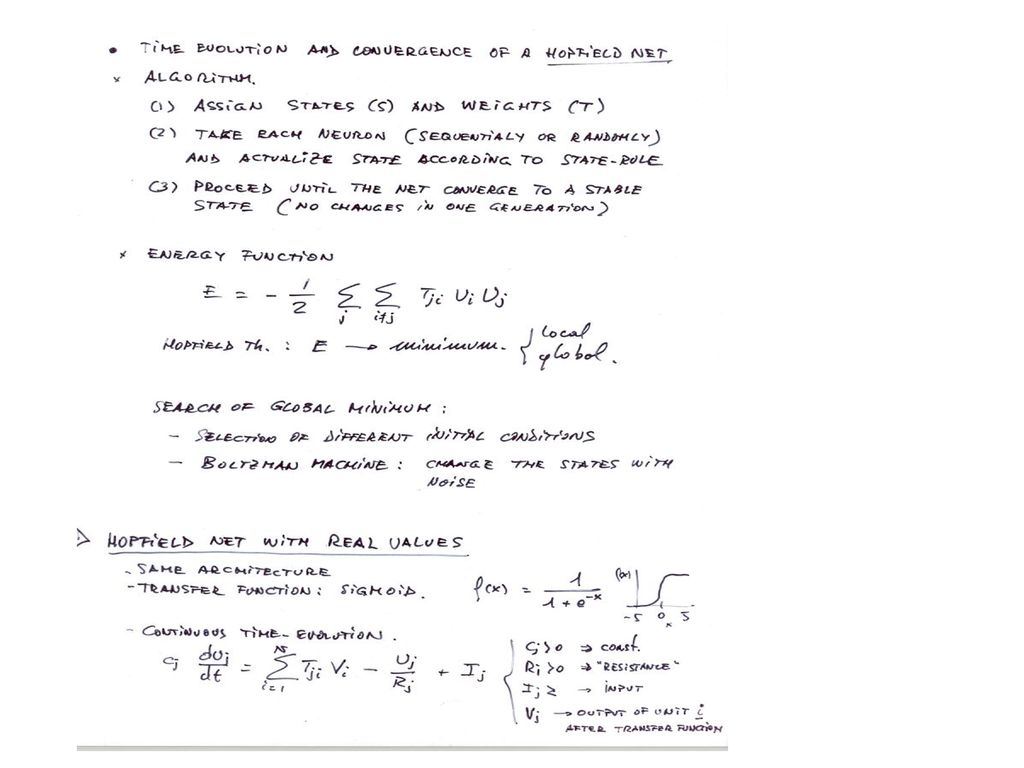 • TIME EVOLUTION AND CONVERGENCE OF A HOPFIELD NET
x ALGORITHM.
(1) ASSIGN STATES (S) AND WEIGHTS (T)
(2) TAKE EACH NEURON (SEQUENTIALY OR RANDOMLY)
AND ACTUALIZE STATE ACCORDING TO STATE-RULE
(3) PROCEED UNTIL THE NET CONVERGE TO A STABLE
STATE (NO CHANGES IN ONE GENERATION)
x ENERGY FUNCTION
E = - 1/2 Σ_j Σ_{i≠j} T_ji U_i U_j
HOPFIELD TH. : E → minimum. { local
global.
SEARCH OF GLOBAL MINIMUM :
- SELECTION OF DIFFERENT INITIAL CONDITIONS
- BOLTZMAN MACHINE : CHANGE THE STATES WITH
NOISE
HOPFIELD NET WITH REAL VALUES
- SAME ARCHITECTURE
- TRANSFER FUNCTION : SIGMOID. f(x) = 1 / (1 + e^-x) f(x) -5 0 5 x
- CONTINUOUS TIME-EVOLUTION.
C_j dU_j/dt = Σ_{i=1}^N T_ji V_i - U_j/R_j + I_j
{ C_j > 0 ⇒ CONST.
R_j > 0 ⇒ "RESISTANCE"
I_j ≥ → INPUT
V_j → OUTPUT OF UNIT i
AFTER TRANSFER FUNCTION